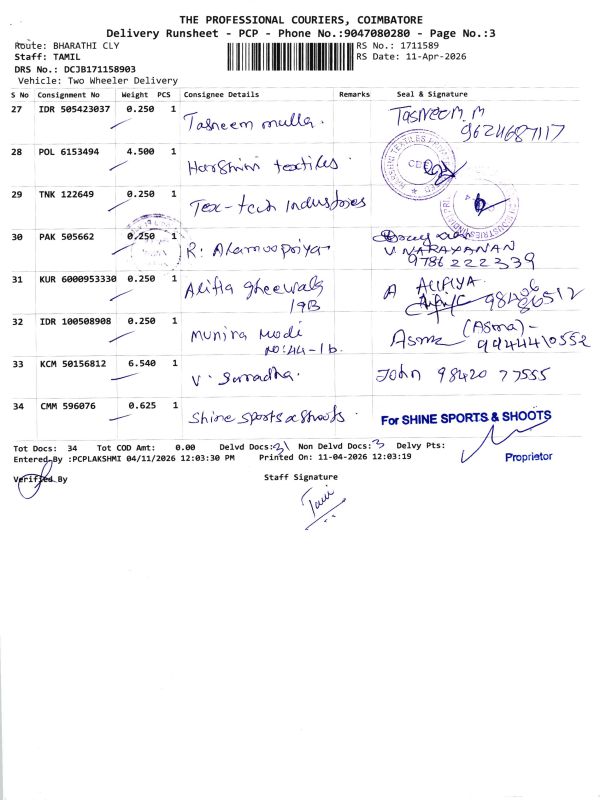 THE PROFESSIONAL COURIERS, COIMBATORE
Delivery Runsheet - PCP - Phone No.:9047080280 - Page No.:3
Route: BHARATHI CLY
RS No.: 1711589
Staff: TAMIL
RS Date: 11-Apr-2026
DRS No.: DCJB171158903
Vehicle: Two Wheeler Delivery
S No Consignment No Weight PCS Consignee Details Remarks Seal & Signature
27 IDR 505423037 0.250 1 Tasneem mulla. TASNEEM.M
9624687117
28 POL 6153494 4.500 1 Harshini textiles.
29 TNK 122649 0.250 1 Tex-tech Industories
30 PAK 505662 0.250 1 R. V. NARAYANAN
9786222339
31 KUR 6000953330 0.250 1 Alifia gheewala A ALIFIYA.
19B
32 IDR 100508908 0.250 1 Munira Modi Asma (Asma)-
NO:44-1b. 9444410552
33 KCM 50156812 6.540 1 V. John 98420 77555
34 CMM 596076 0.625 1 Shine sports & shoots. For SHINE SPORTS & SHOOTS
Proprietor
Tot Docs: 34 Tot COD Amt: 0.00 Delvd Docs:31 Non Delvd Docs:3 Delvy Pts:
Entered By :PCPLAKSHMI 04/11/2026 12:03:30 PM Printed On: 11-04-2026 12:03:19
Verified By Staff Signature
Tamil